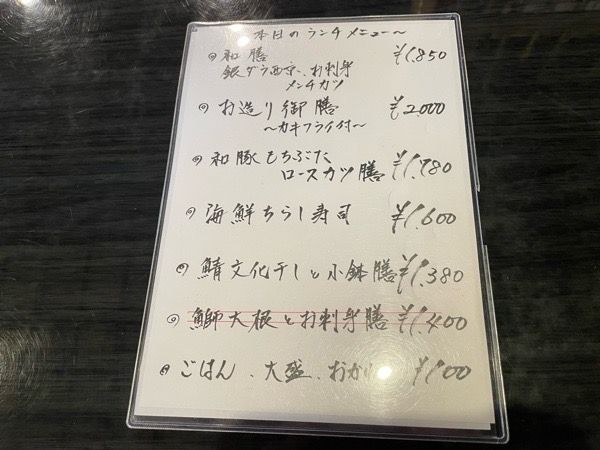 本日のランチメニュー〜
◎和膳 ¥1,850
銀ダラ西京、お刺身
メンチカツ
◎お造り御膳 ¥2,000
〜カキフライ付〜
◎和豚もちぶた
ロースカツ膳 ¥1,780
◎海鮮ちらし寿司 ¥1,600
◎鯖文化干しと小鉢膳 ¥1,380
◎鰤大根とお刺身膳 ¥1,400
◎ごはん、大盛、おかわ ¥100